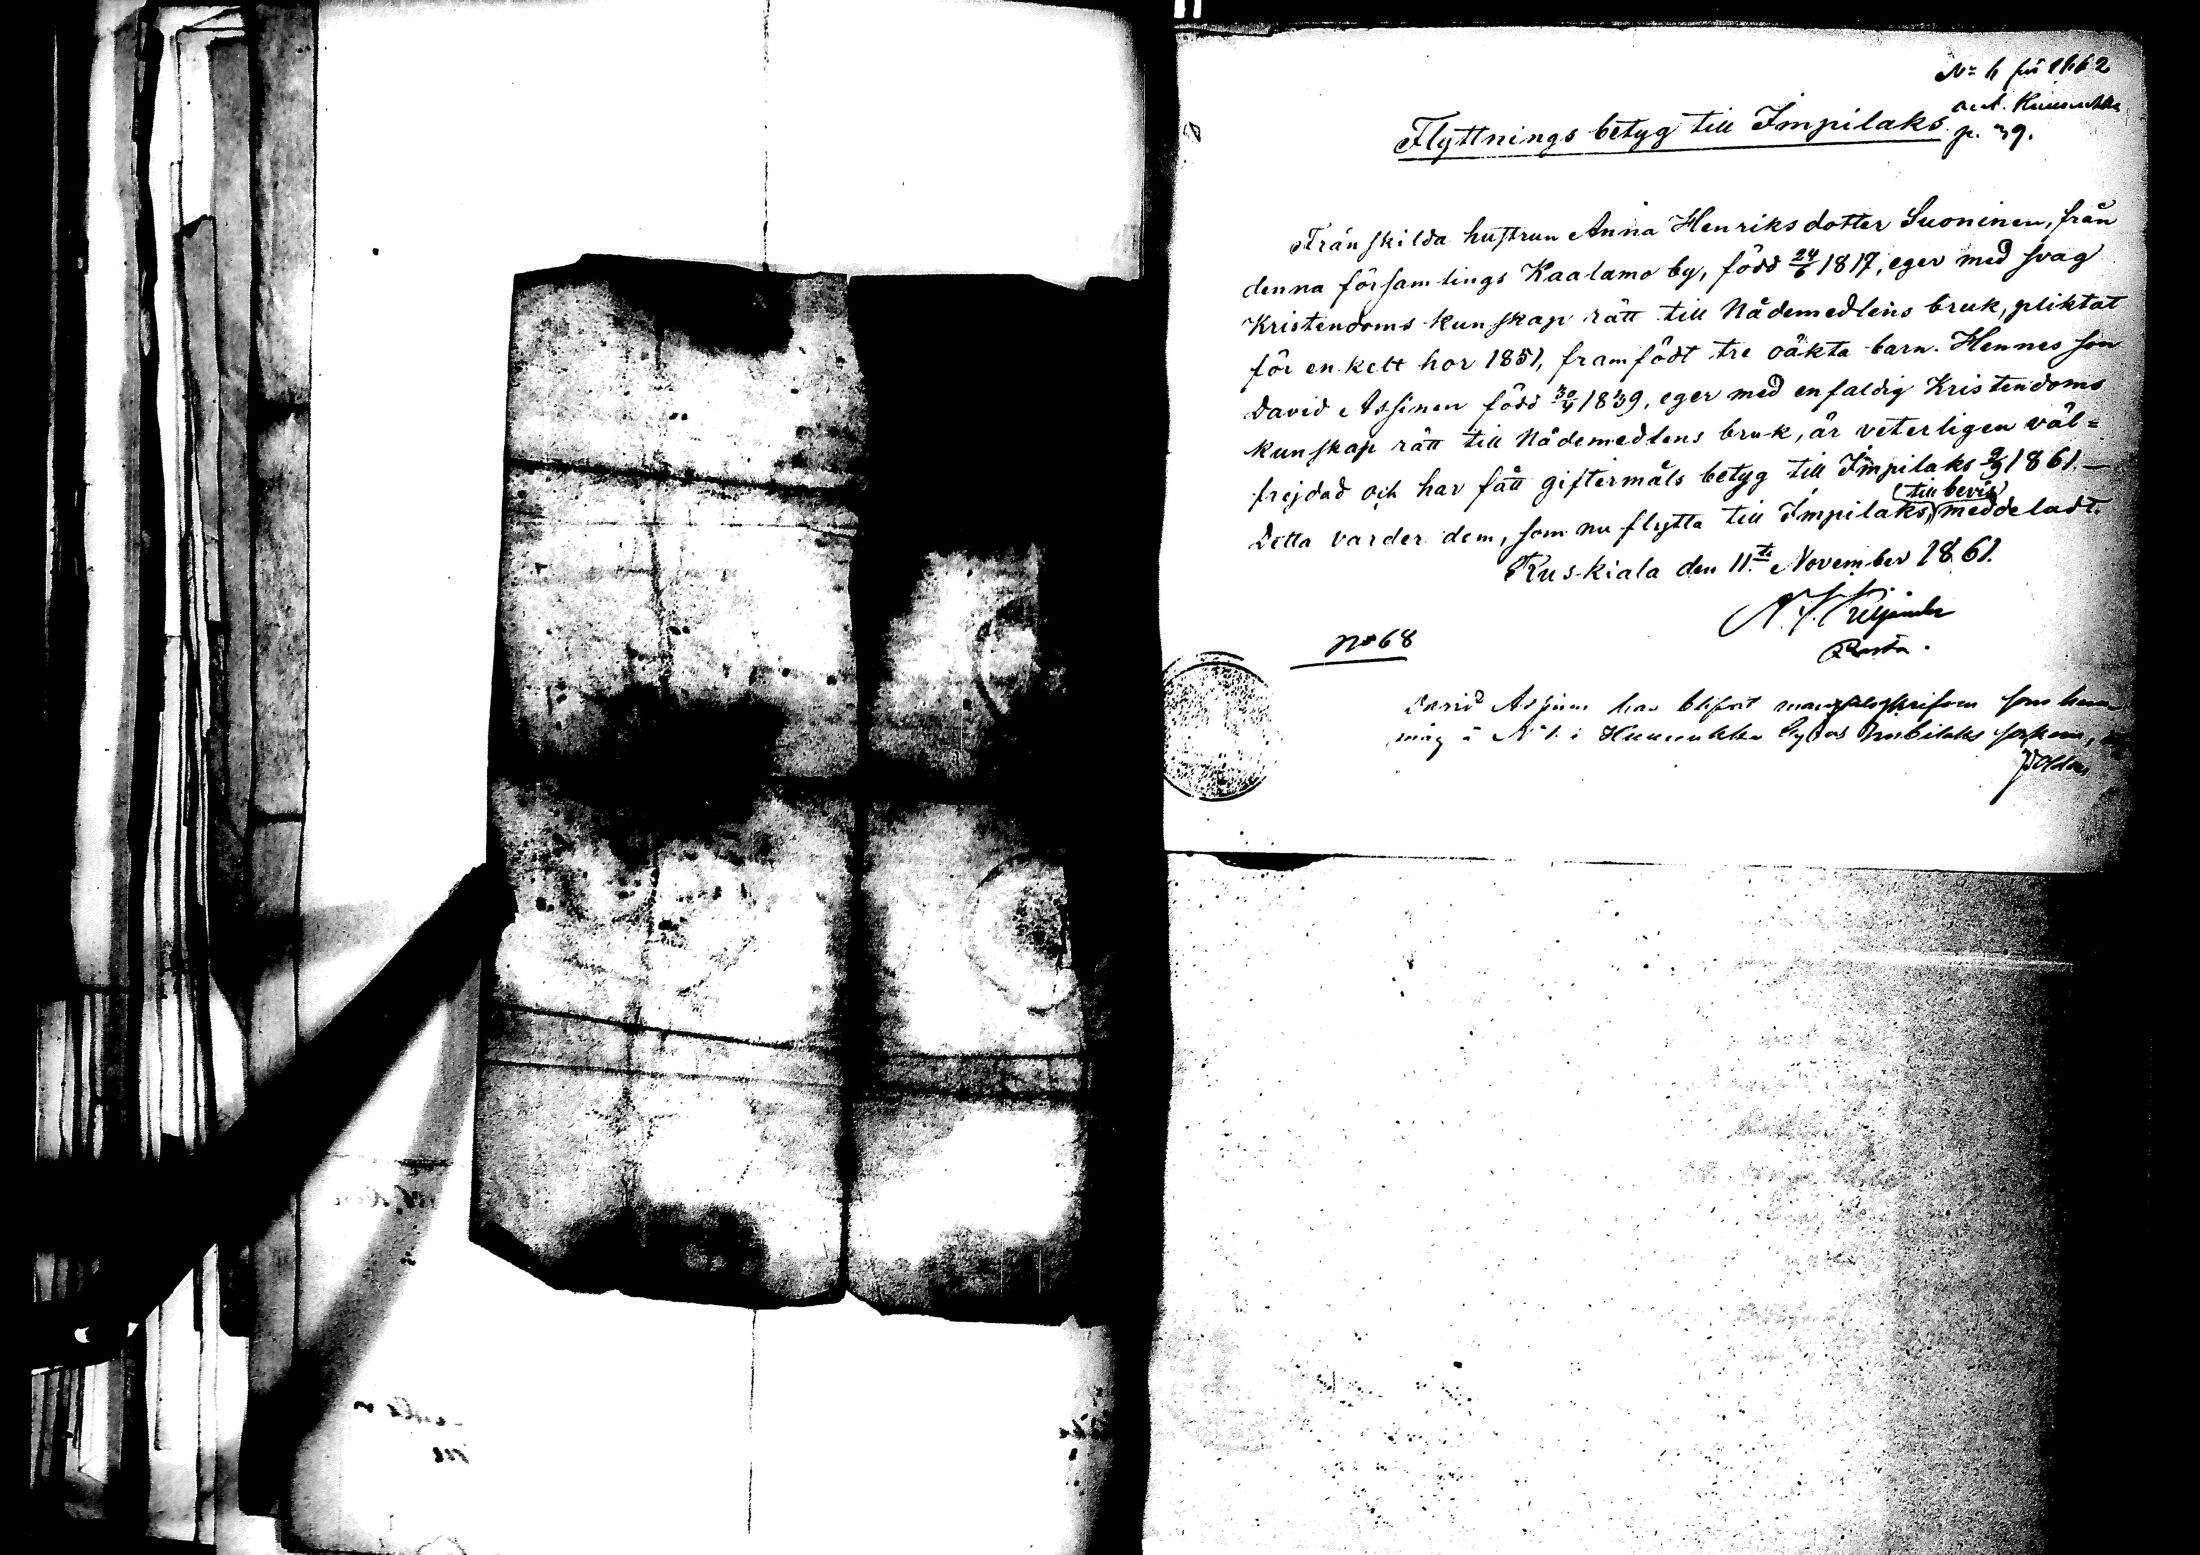 No 6 för 1862
ant. Huunukka
p. 39.
Flyttnings betyg till Impilaks.
Frånskilda hustrun Anna Henriksdotter Suoninen, från
denna församlings Kaalamo by, född 24/6 1817, eger med svag
Kristendoms kunskap rätt till Nådemedlens bruk, pliktat
för enkelt hor 1851, framfödt tre oäkta barn. Hennes son
David Assinen född 30/4 1839, eger med enfaldig Kristendoms
kunskap rätt till Nådemedlens bruk, är veterligen väl=
frejdad och har fått giftermåls betyg till Impilaks 2/9 1861.—
Detta varder dem, som nu flytta till Impilaks, (till bevis) meddeladt.
Ruskiala den 11te November 1861.
Pastor.
No 68
David Assinen har blifvit som hem
måg å No 1. i Huunukka by af Imbilaks socken,